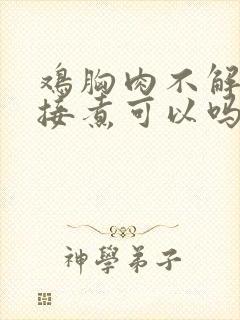 鸡胸肉不解
接煮可以吗
神學弟子